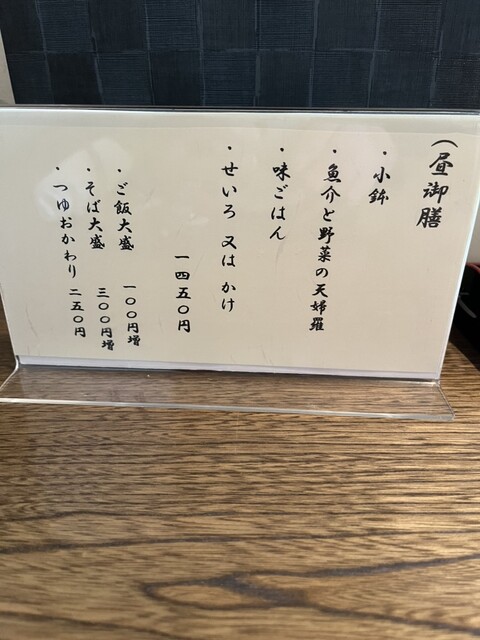 (昼御膳
・小鉢
・魚介と野菜の天婦羅
・味ごはん
・せいろ 又は かけ
一四五〇円
・ご飯大盛 一〇〇円増
・そば大盛 三〇〇円増
・つゆおかわり 二五〇円